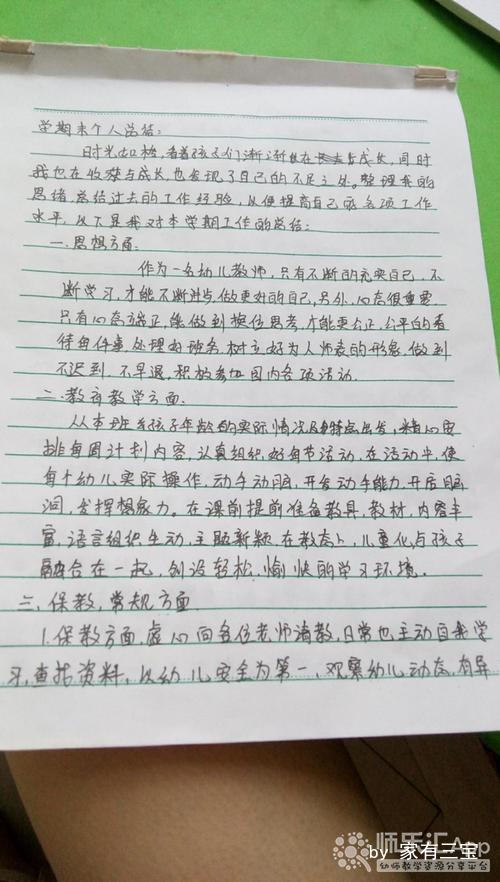 学期末个人总结:
时光如梭,看着孩子们渐渐在成长,同时
我也在收获与成长也发现了自己的不足之处。整理我的
思绪总结过去的工作经验,以便提高自己的各项工作
水平,以下是我对本学期工作的总结:
一.思想方面:
作为一名幼儿教师,只有不断的充实自己,不
断学习,才能不断进步做更好的自己,另外,心态很重要
只有心态端正,能做到换位思考,才能更公正,公平的看
待每件事,处理好班务,树立好为人师表的形象,做到
不迟到,不早退,积极参加园内各项活动.
二.教育教学方面.
从本班孩子年龄的实际情况及特点出发,精心安
排每周计划内容,认真组织好每节活动,在活动中,使
每个幼儿实际操作,动手动脑,开发动手能力,开启脑
洞,发挥想象力。在课前提前准备教具,教材,内容丰
富,语言组织生动,主题新颖.在教态上,儿童化与孩子
融合在一起,创设轻松,愉快的学习环境.
三.保教,常规方面
1.保教方面,虚心向各位老师请教,日常也主动自我学
习,查找资料,以幼儿安全为第一,观察幼儿动态,有异
师乐汇App
幼师教学资源分享平台
by 家有三宝